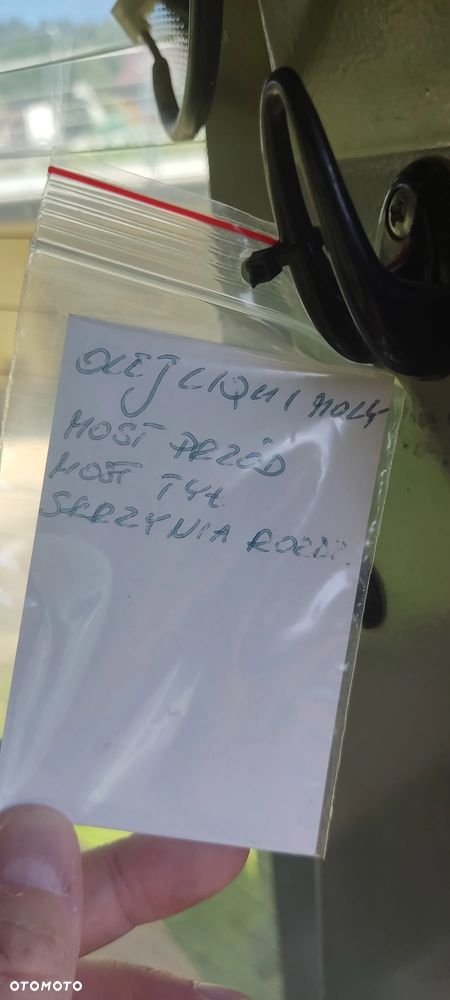 OLEJ LIQUI MOLY
MOST PRZÓD
MOST TYŁ
SKRZYNIA ROZDZ.
OTOMOTO